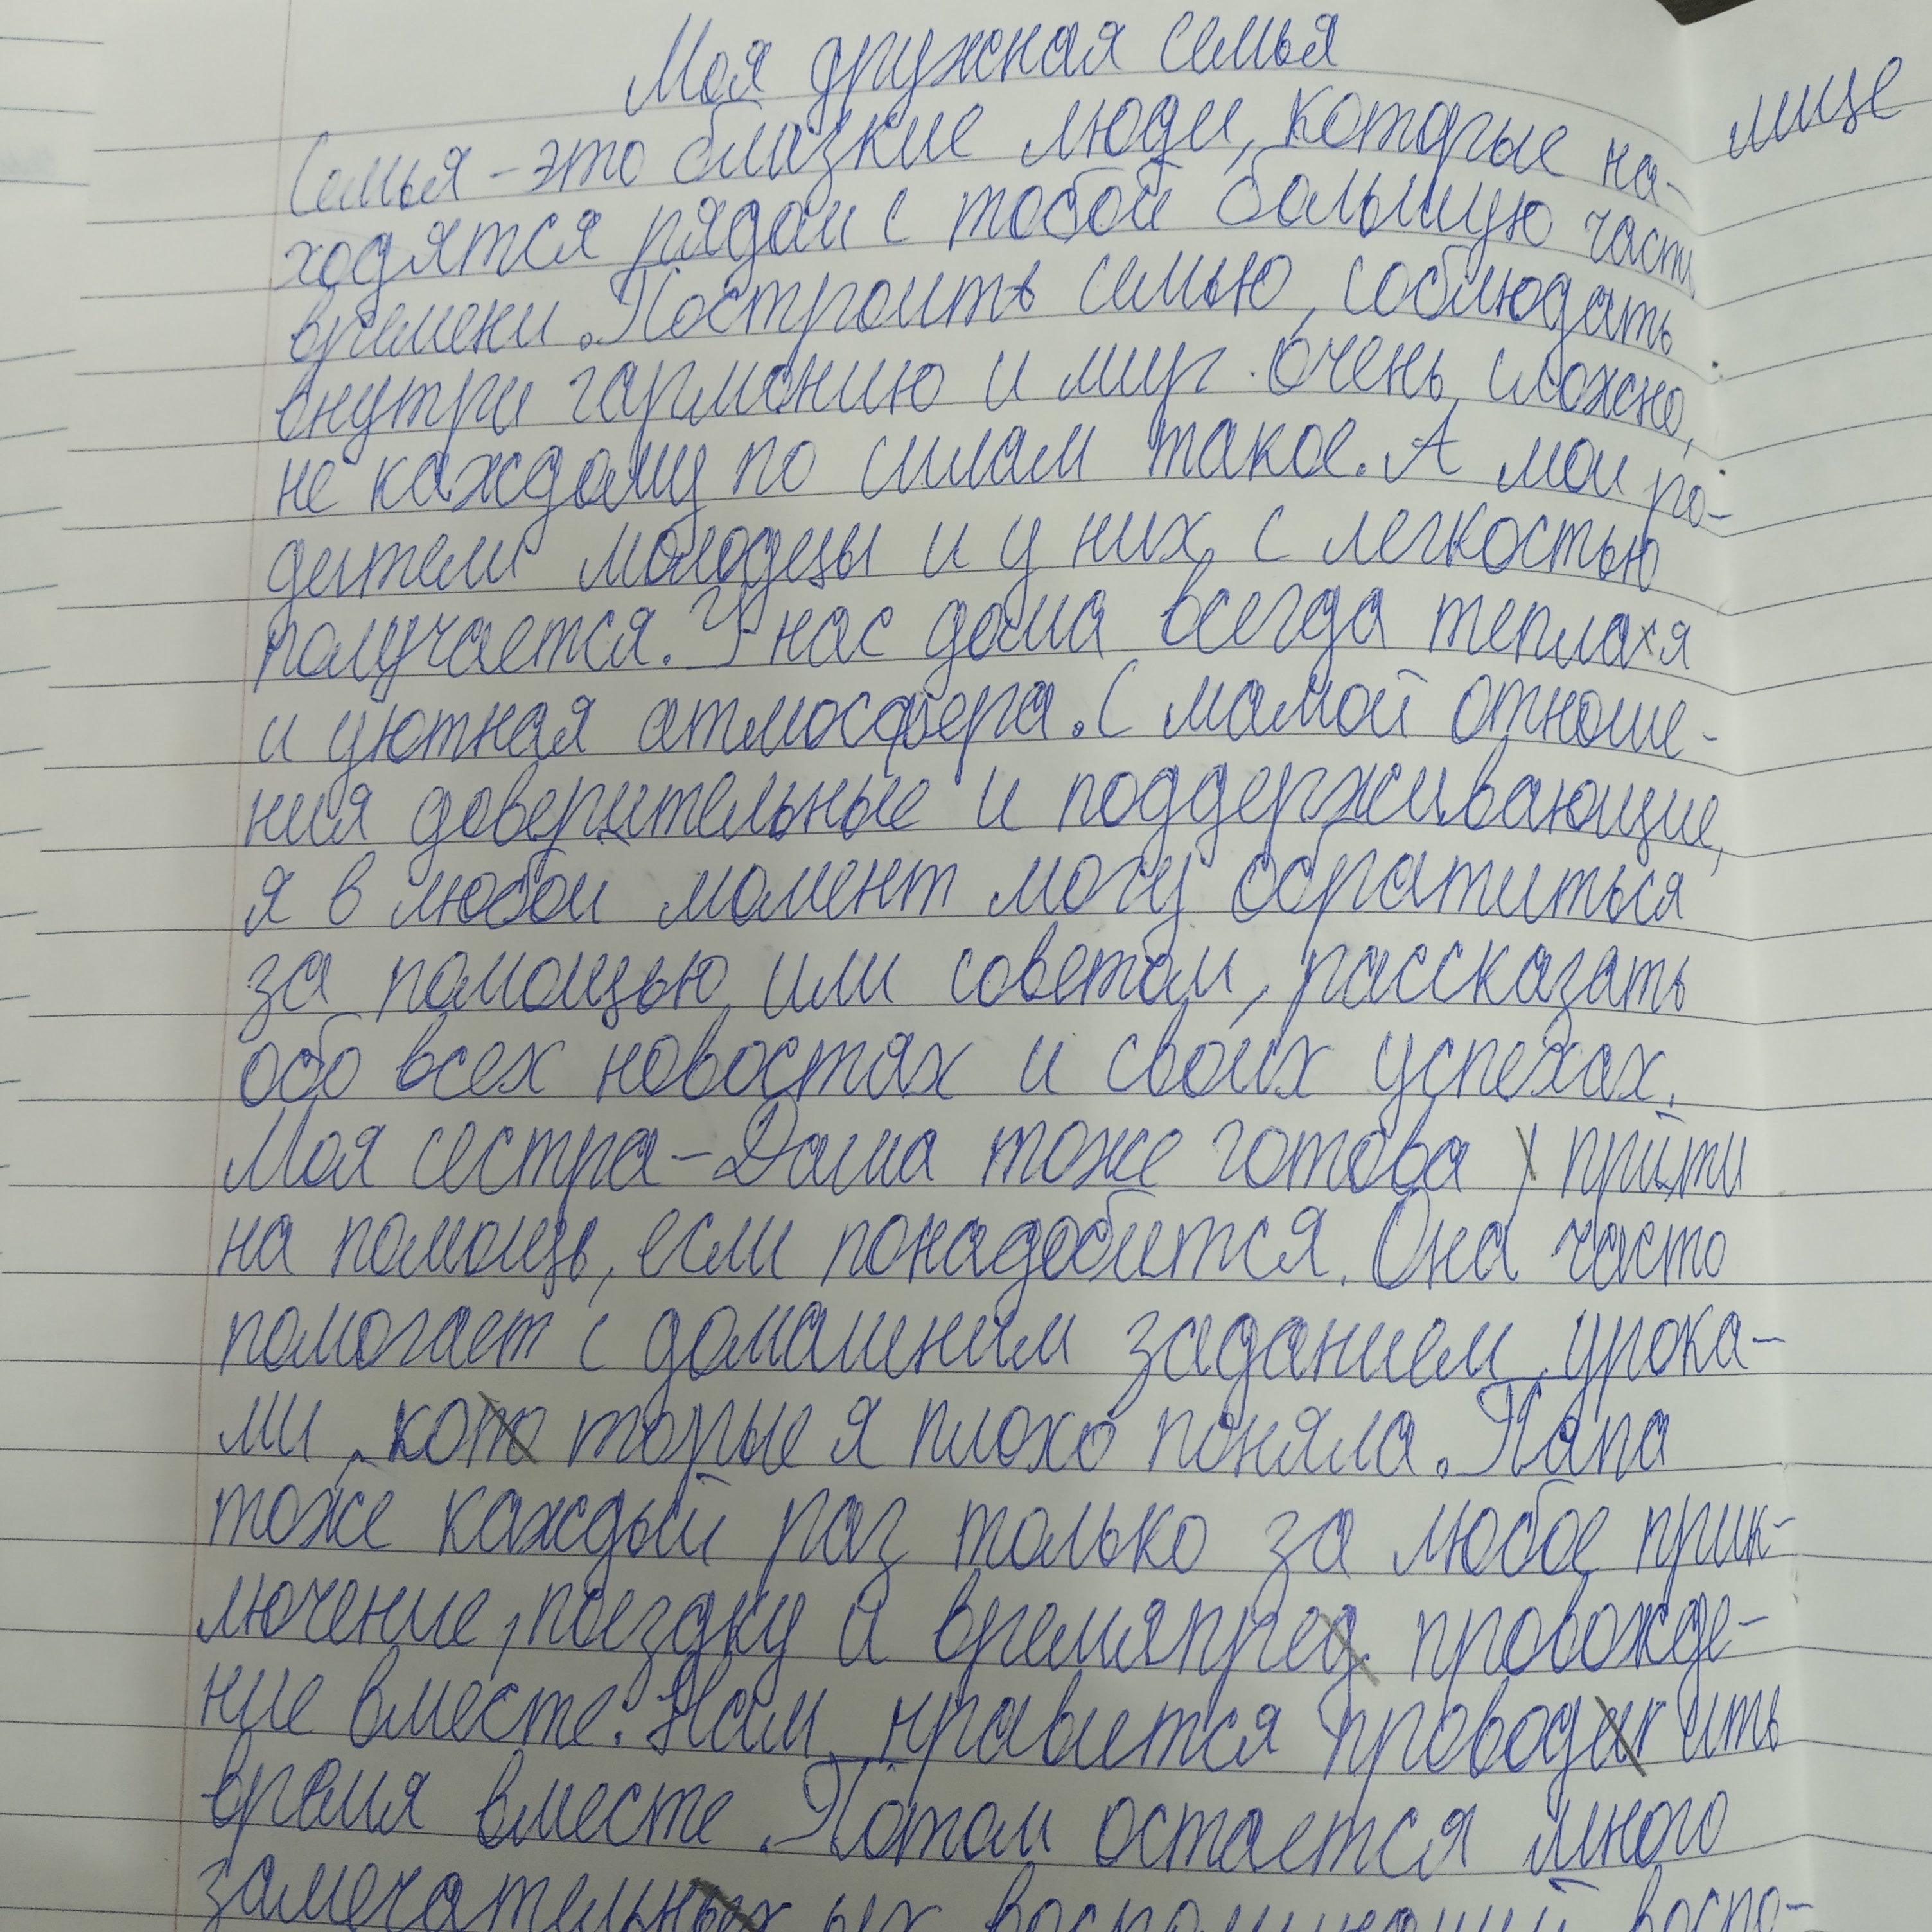 Моя дружная семья
лице
Семья - это близкие люди, которые на-
ходятся рядом с тобой большую часть
времени. Построить семью, соблюдать
внутри гармонию и мир очень сложно,
не каждому по силам такое. А мои ро-
дители молодецы и у них с легкостью
получается. У нас дома всегда теплая
и уютная атмосфера. С мамой отноше-
ния доверительные и поддерживающие,
я в любой момент могу обратиться
за помощью или советом, рассказать
обо всех новостях и своих успехах.
Моя сестра - Даша тоже готова прийти
на помощь, если понадобится. Она часто
помогает с домашним заданием, урока-
ми, которые я плохо поняла. Папа
тоже каждый раз только за любое прик-
лючение, поездку и времяпровожде-
ние вместе. Нам нравится проводить
время вместе. Потом остается много
замечательных воспоминаний воспо-